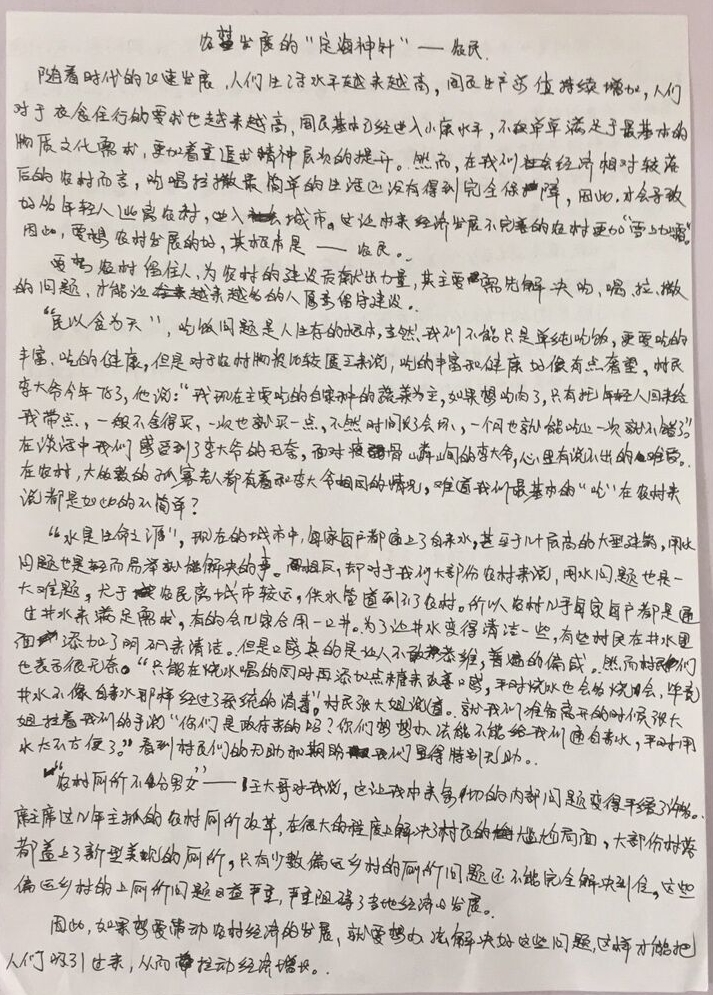 农蓝发展的“定海神针”——农民.
随着时代的改速发展，人们生活水平越来越高，国民生产总值持续增加，人们
对于衣食住行的要求也越来越高，国民基本已经进入小康水平，不仅单单满足于最基本的
物质文化需求，更加着重追求精神层次的提升。然而，在我们社会经济相对较落
后的农村而言，吃喝拉撒最简单的生活还没有得到完全保障，因此，才会导致
好的年轻人逃离农村，进入城市。这让本来经济发展不完善的农村更加“雪上加霜”。
因此，要想农村发展的好，其根本是——农民。
要想农村留住人，为农村的建设贡献出力量，其主要需先解决吃、喝、拉、撒
的问题，才能让越来越多的人愿意留守建设。
“民以食为天”，吃饭问题是人生存的根本，当然我们不能只是单纯吃饱，更要吃的
丰富、吃的健康，但是对于农村物资比较匮乏来说，吃的丰富和健康好像有点奢望，村民
李大爷今年78了，他说：“我现在主要吃的自家种的蔬菜为主，如果想吃肉了，只有把年轻人回来给
我带点，一般不舍得买，一次也就买一点，不然时间久了会坏，一个月也就能吃上一次就不错了。”
在谈话中我们感受到了李大爷的无奈，面对瘦骨嶙峋的李大爷，心里有说不出的难受。
在农村，大多数的孤寡老人都有着和李大爷相同的情况，难道我们最基本的“吃”在农村来
说都是如此的不简单？
“水是生命之源”，现在的城市中，每家每户都通上了自来水，甚至于几十层高的大型建筑，用水
问题也是轻而易举就能解决的事。相反，却对于我们大部份农村来说，用水问题也是一
大难题，尤于农民离城市较远，供水管道到不了农村。所以农村几乎每家每户都是通
过井水来满足需求，有的会几家合用一口井。为了让井水变得清洁一些，有些村民在井水里
面添加了明矾来清洁。但是口感真的是让人不敢恭维，普遍的偏咸。然而村民们
也表示很无奈。“只能在烧水喝的同时再添加点糖来改善口感，平时烧水也会多烧会，毕竟
井水不像自来水那样经过了系统的消毒”。村民张大姐说道。就我们准备离开的时候张大
姐拉着我们的手说“你们是政府来的吗？你们想想办法能不能给我们通自来水，平时用
水太不方便了。”看到村民们的无助和期盼我们显得特别无助。
“农村厕所不分男女”——王大哥对我说，这让我本来急切的内部问题变得平缓了许多。
席主席这几年主抓的农村厕所改革，在很大的程度上解决了村民的尴尬局面，大部份村落
都盖上了新型美观的厕所，只有少数偏远乡村的厕所问题还不能完全解决到位，这些
偏远乡村的上厕所问题日益严重，严重阻碍了当地经济的发展。
因此，如果想要带动农村经济的发展，就要想办法解决好这些问题，这样才能把
人们吸引过来，从而拉动经济增长。